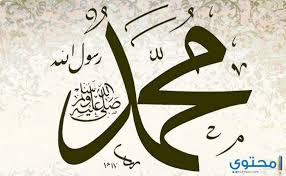 محمد
رسول الله
صلى الله عليه وسلم
محتوى